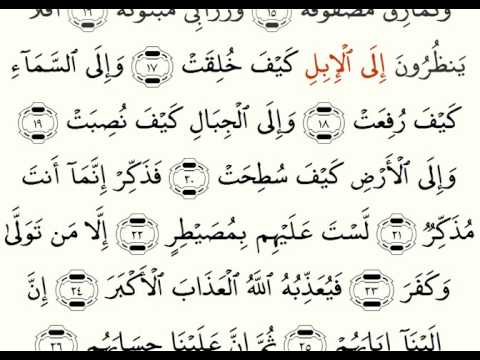 وَنَمَارِقُ مَصْفُوفَةٌ ١٥ وَزَرَابِيُّ مَبْثُوثَةٌ ١٦ أَفَلَا
يَنظُرُونَ إِلَى ٱلْإِبِلِ كَيْفَ خُلِقَتْ ١٧ وَإِلَى ٱلسَّمَآءِ
كَيْفَ رُفِعَتْ ١٨ وَإِلَى ٱلْجِبَالِ كَيْفَ نُصِبَتْ ١٩
وَإِلَى ٱلْأَرْضِ كَيْفَ سُطِحَتْ ٢٠ فَذَكِّرْ إِنَّمَآ أَنتَ
مُذَكِّرٌ ٢١ لَّسْتَ عَلَيْهِم بِمُصَيْطِرٍ ٢٢ إِلَّا مَن تَوَلَّىٰ
وَكَفَرَ ٢٣ فَيُعَذِّبُهُ ٱللَّهُ ٱلْعَذَابَ ٱلْأَكْبَرَ ٢٤ إِنَّ
إِلَيْنَآ إِيَابَهُمْ ٢٥ ثُمَّ إِنَّ عَلَيْنَا حِسَابَهُم ٢٦